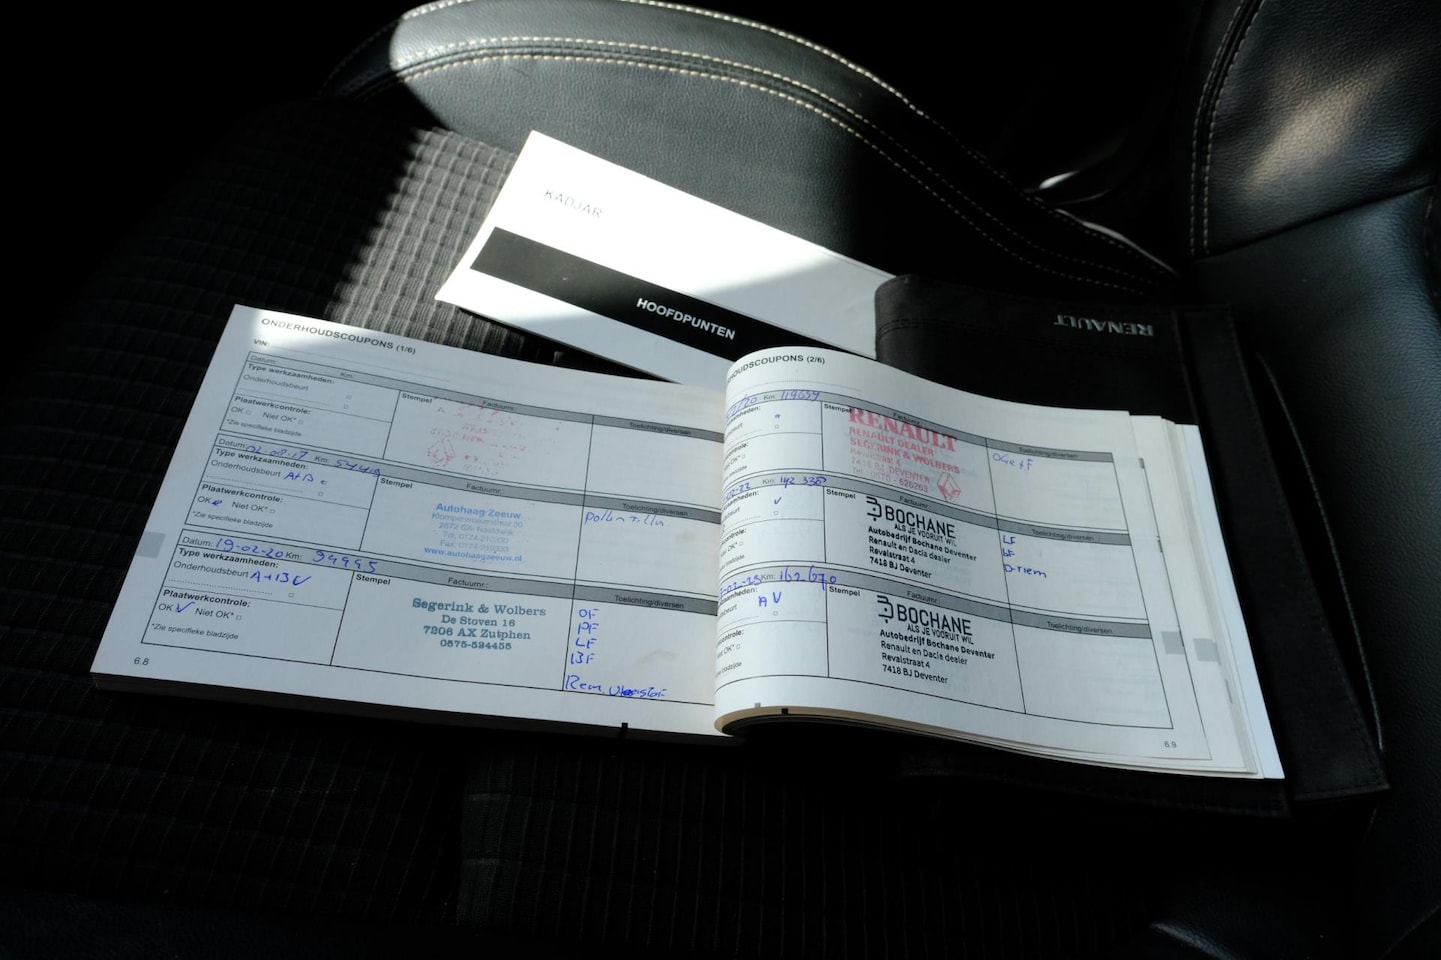 KADJAR
HOOFDPUNTEN
RENAULT
ONDERHOUDSCOUPONS (1/6)
VIN:
Datum: Km:
Type werkzaamheden:
Onderhoudsbeurt
Plaatwerkcontrole:
OK Niet OK*
*Zie specifieke bladzijde
Stempel
Factuurnr.
Toelichting/diversen
Datum: 02-08-17 Km:
Type werkzaamheden:
Onderhoudsbeurt A+B
Plaatwerkcontrole:
OK Niet OK*
*Zie specifieke bladzijde
Stempel
Factuurnr.:
Autohaag Zeeuw
www.autohaagzeeuw.nl
Toelichting/diversen
Datum: 19-02-20 Km: 94995
Type werkzaamheden:
Onderhoudsbeurt A+B
Plaatwerkcontrole:
OK Niet OK*
*Zie specifieke bladzijde
Stempel
Factuurnr.:
Segerink & Wolbers
De Stoven 16
7206 AX Zutphen
0575-524455
Toelichting/diversen
OF
PF
LF
BF
Rem
6.8
HOUDSCOUPONS (2/6)
/20 Km: 119659
Stempel
Factuurnr.
RENAULT
RENAULT DEALER
SEGERINK & WOLBERS
Revalstraat 4
7418 BJ DEVENTER
Toelichting/diversen
Km: 142 338
Stempel
Factuurnr.:
BOCHANE
ALS JE VOORUIT WIL
Autobedrijf Bochane Deventer
Renault en Dacia dealer
Revalstraat 4
7418 BJ Deventer
Toelichting/diversen
LF
D-riem
-02-25 Km: 162670
A
Stempel
Factuurnr.:
BOCHANE
ALS JE VOORUIT WIL
Autobedrijf Bochane Deventer
Renault en Dacia dealer
Revalstraat 4
7418 BJ Deventer
Toelichting/diversen
6.9